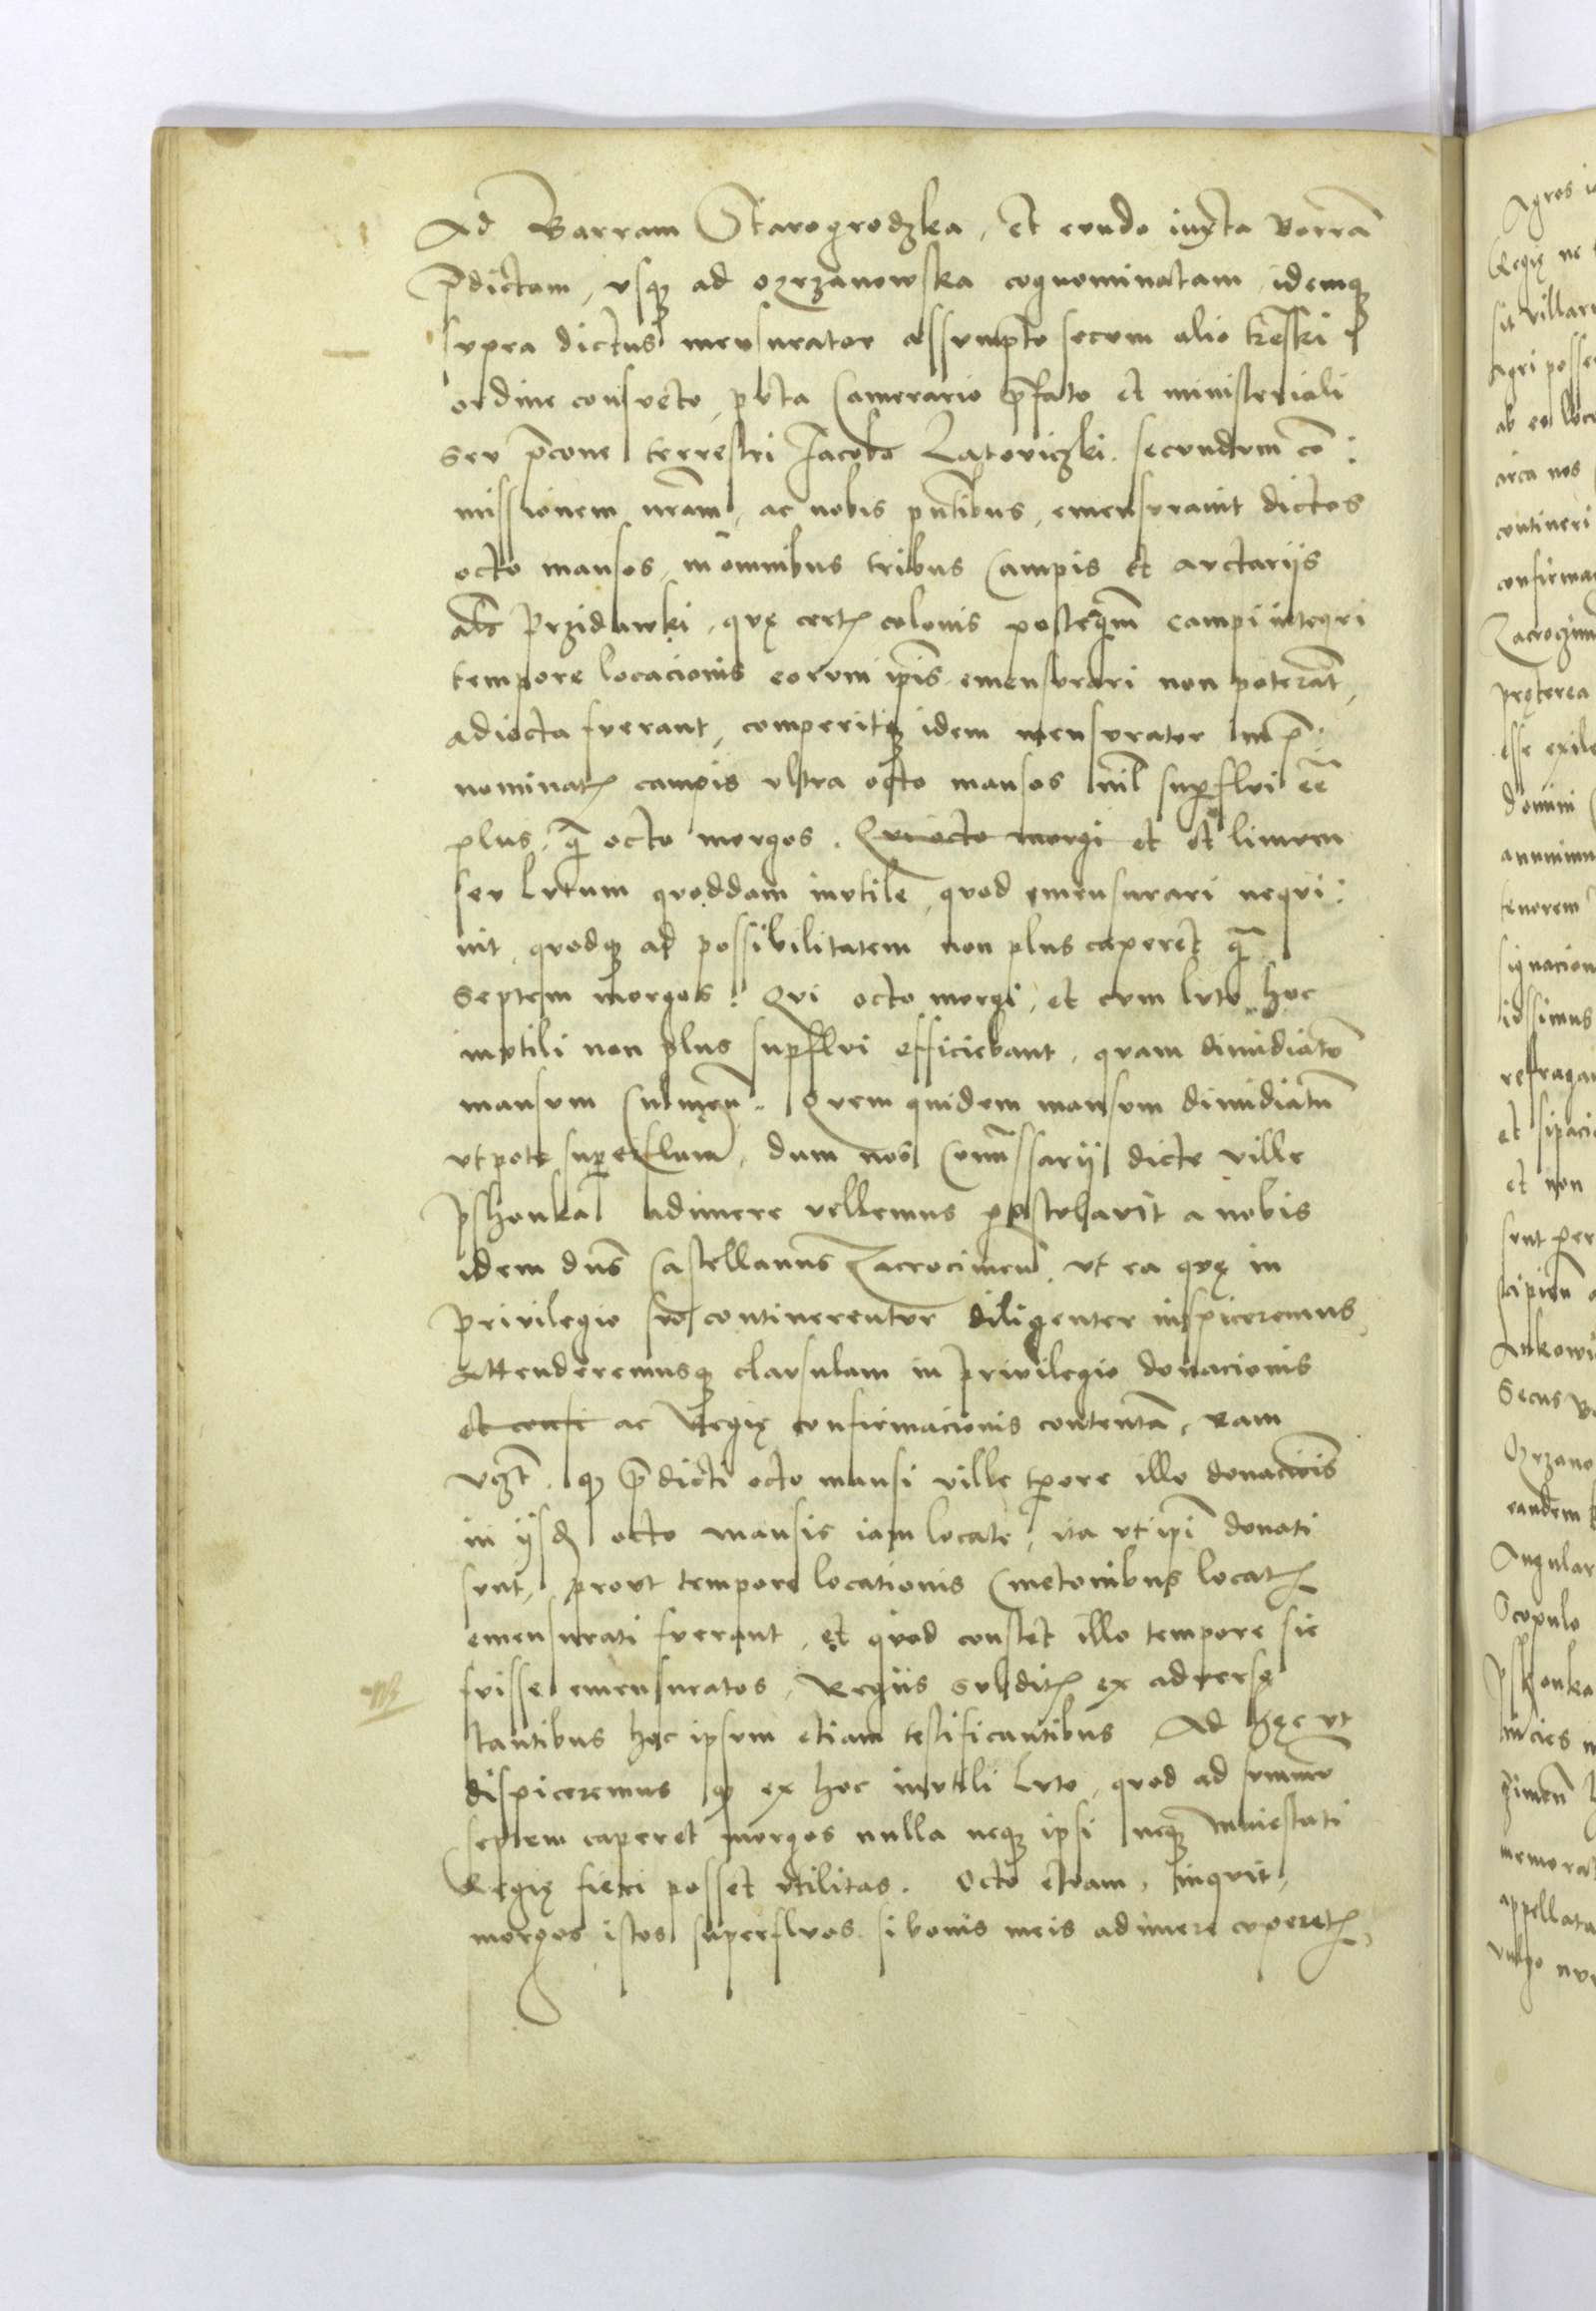 Ad Barram Starogrodzka, et eundo iuxta Borrā
p̄dictam, vsq̢ ad ozrzanowska cognominatam, idemq̢
supra dictus mensurator assumpto secum alio
ordine consueto, puta Camerario p̄fato et ministeriali
seu p̄cone terrestri Jacobo Latoviczki. secundum cō:
missionem nr̄am, ac nobis pn̄tibus, emensurauit dictos
octo mansos, in omnibus tribus Campis et arctarijs
als Przidawki, quę certꝭ colonis posteaqm̄ campi integri
tempore locacionis eorum ip̄is emensurari non poterāt,
adiecta fuerant, comperitq̢ idem mensurator in p̄:
nominatꝭ campis vltra octo mansos nil supflui eē
plus, q̄ octo morgos. Qui octo morgi et limum
seu lutum quoddam inutile, quod emensurari nequi:
uit, quodq̢ ad possibilitatem non plus caperet q̄
septem morgos. Qui octo morgi, et cum luto hoc
inutili non plus supflui efficiebant, quam dimidiatū
mansum Culmeñ. Quem quidem mansum dimidiatū
vtpote superfluum, dum nos Com̄issarij dicte ville
Pshonka adimere vellemus postulauit a nobis
idem dn̄s Castellanus Zacrocimeñ. vt ea quę in
privilegio suo continerentur diligenter inspiceremus,
Attenderemusq̢ clausulam in privilegio donacionis
et confi ac Regię confirmacionis contentā, eam
vꝫt. q̢ p̄dicti octo mansi ville tp̄ore illo donaciōis
in ijsd̄ octo mansis iam locate, ita vt ip̄i donati
sunt, prout tempore locationis Cmetonibus locatꝭ
emensurati fuerant, et quod constet illo tempore sic
fuisse emensuratos, Regiis subditꝭ ex aduerso
stantibus hoc ipsum etiam testificantibus Ad hęc vt
dispiceremus q̢ ex hoc inutili luto, quod ad summū
septem caperet morgos nulla neq̢ ipsi neq̢ Maiestati
Regię fieri posset vtilitas. Octo etiam, inquit,
morgos istos superfluos si bonis meis adimere cuperetꝭ,